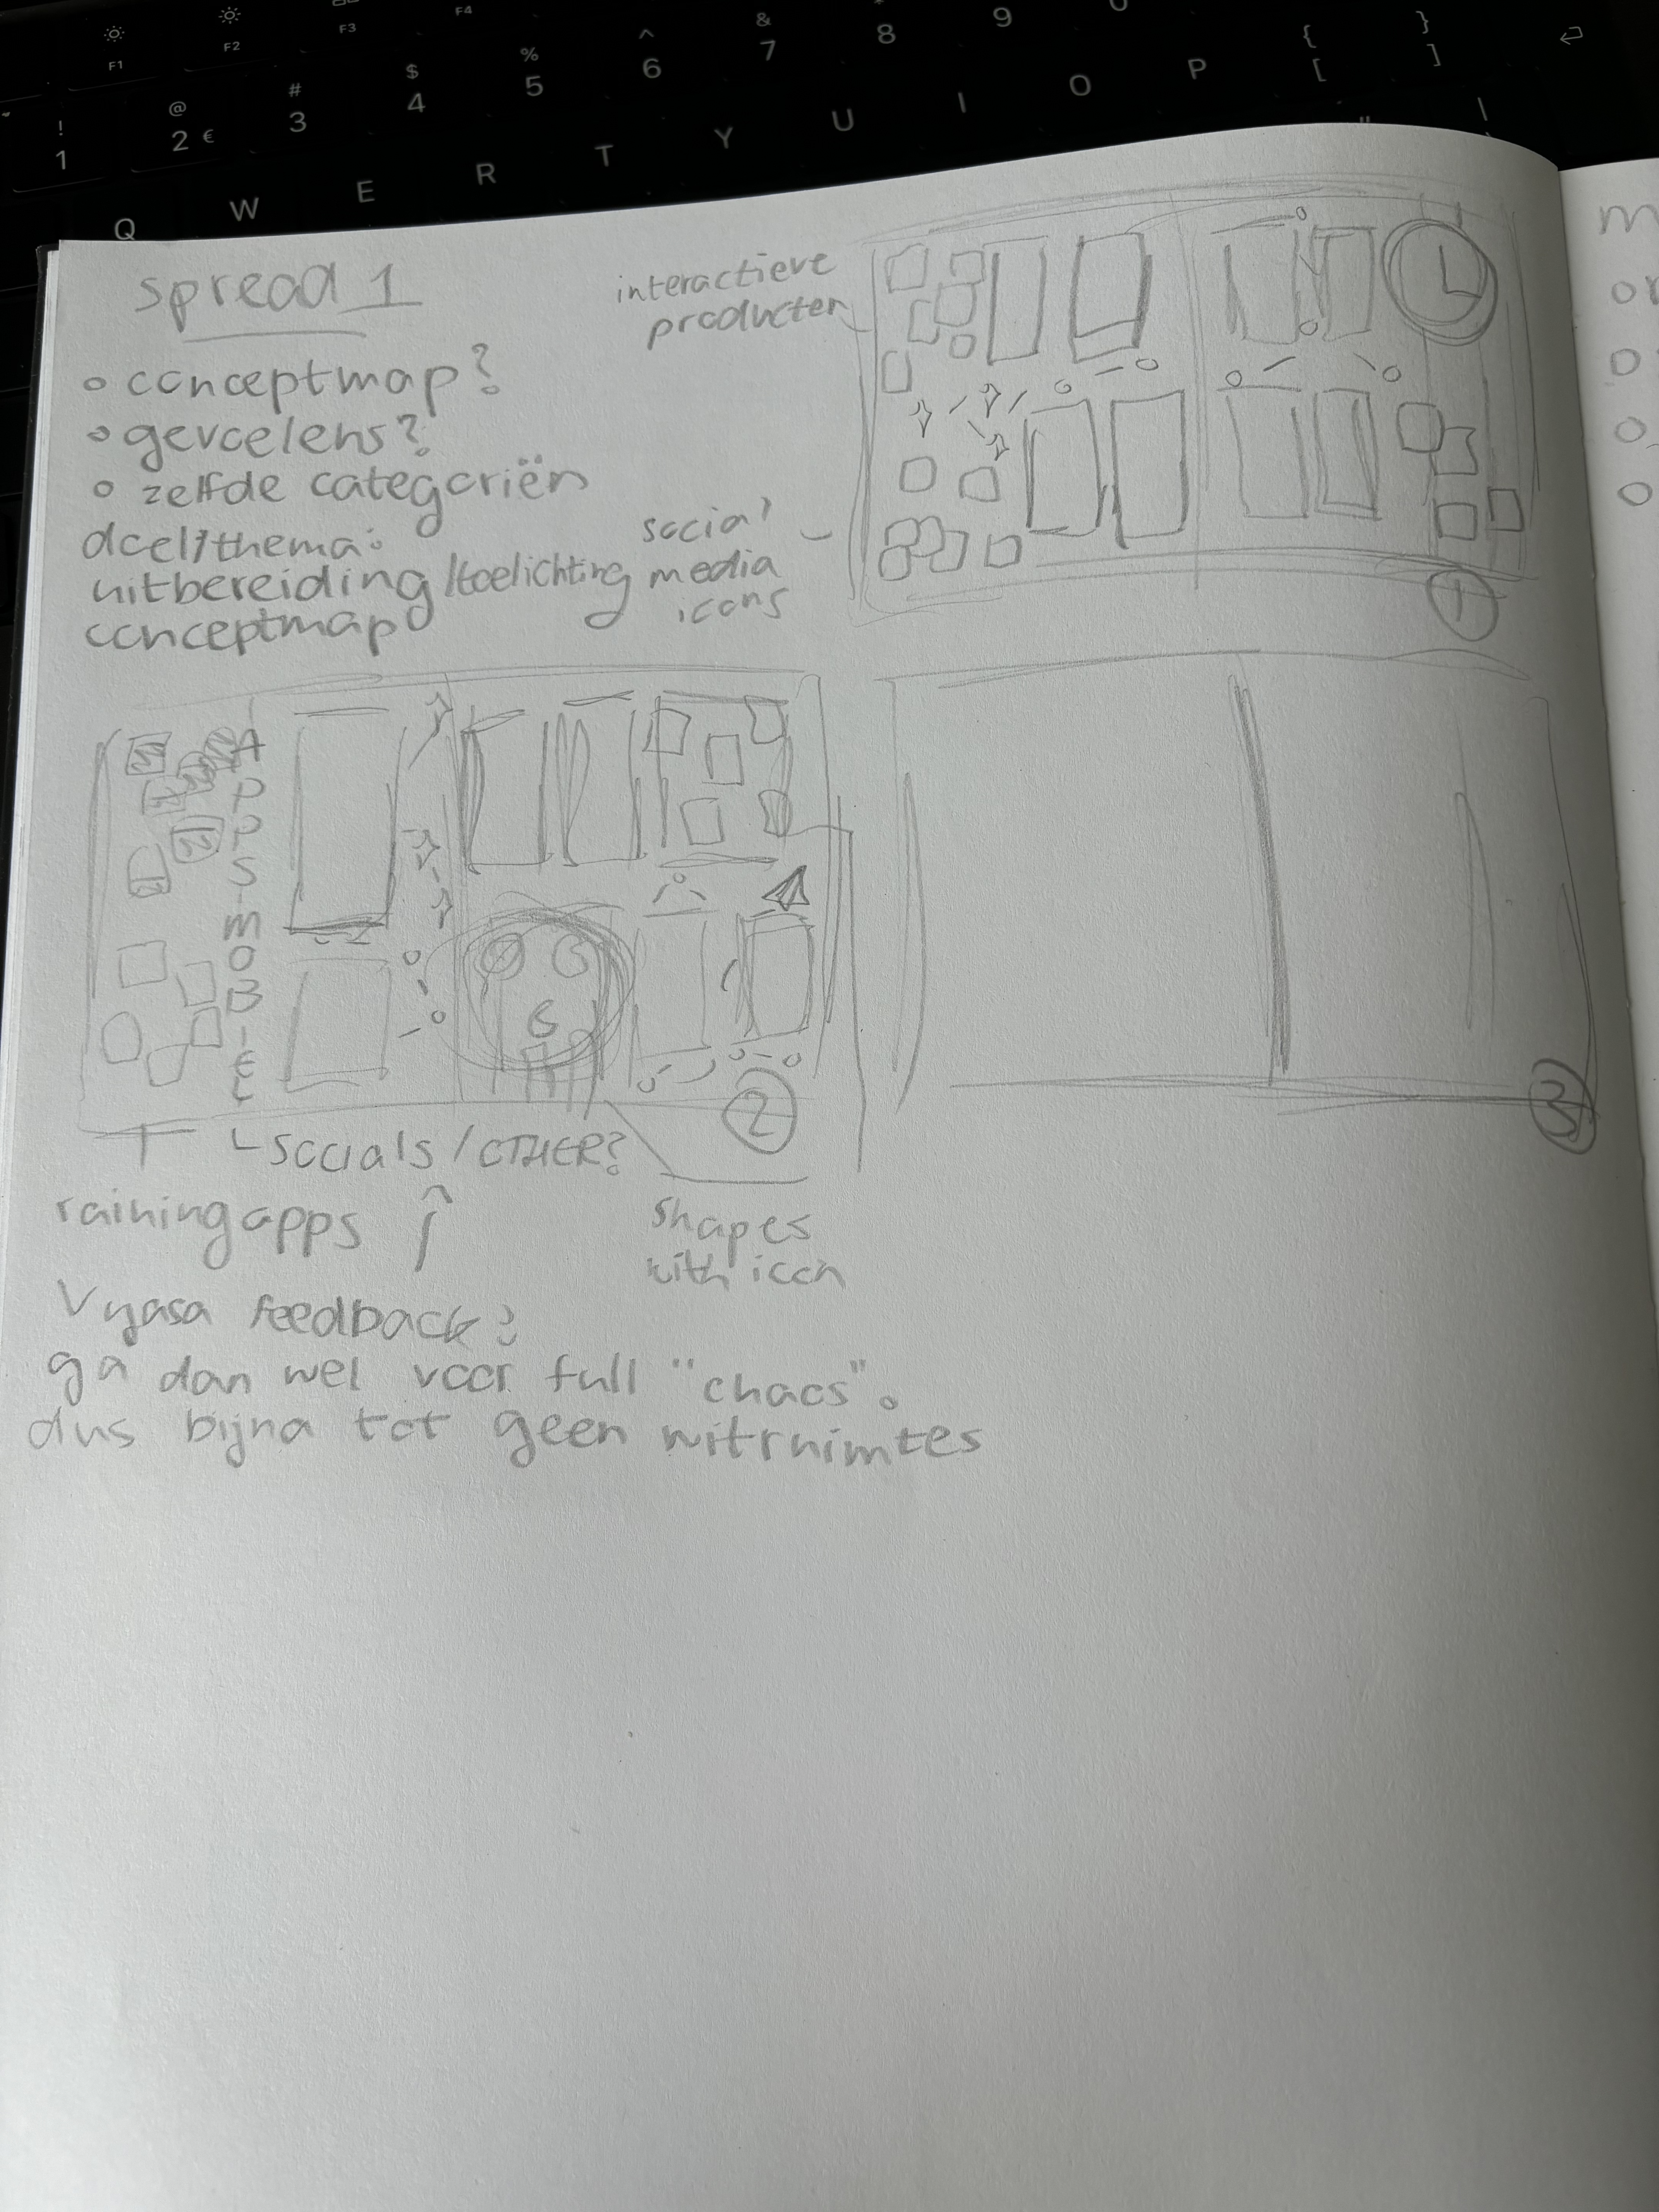 spread 1
o conceptmap?
o gevoelens?
o zelfde categoriën
doel/thema:
uitbereiding/toelichting
conceptmap
interactieve
producten
social
media
icons
1
A
P
P
S
M
O
B
I
E
L
2
3
socials/OTHER?
raining apps
shapes
with icon
Vyasa feedback:
ga dan wel voor full "chaos".
dus bijna tot geen witruimtes
m
o
o
o
! 1
@ 2 €
# 3
$ 4
% 5
^ 6
& 7
8
9
{ [
} ]
F1
F2
F3
F4
Q W E R T Y U I O P